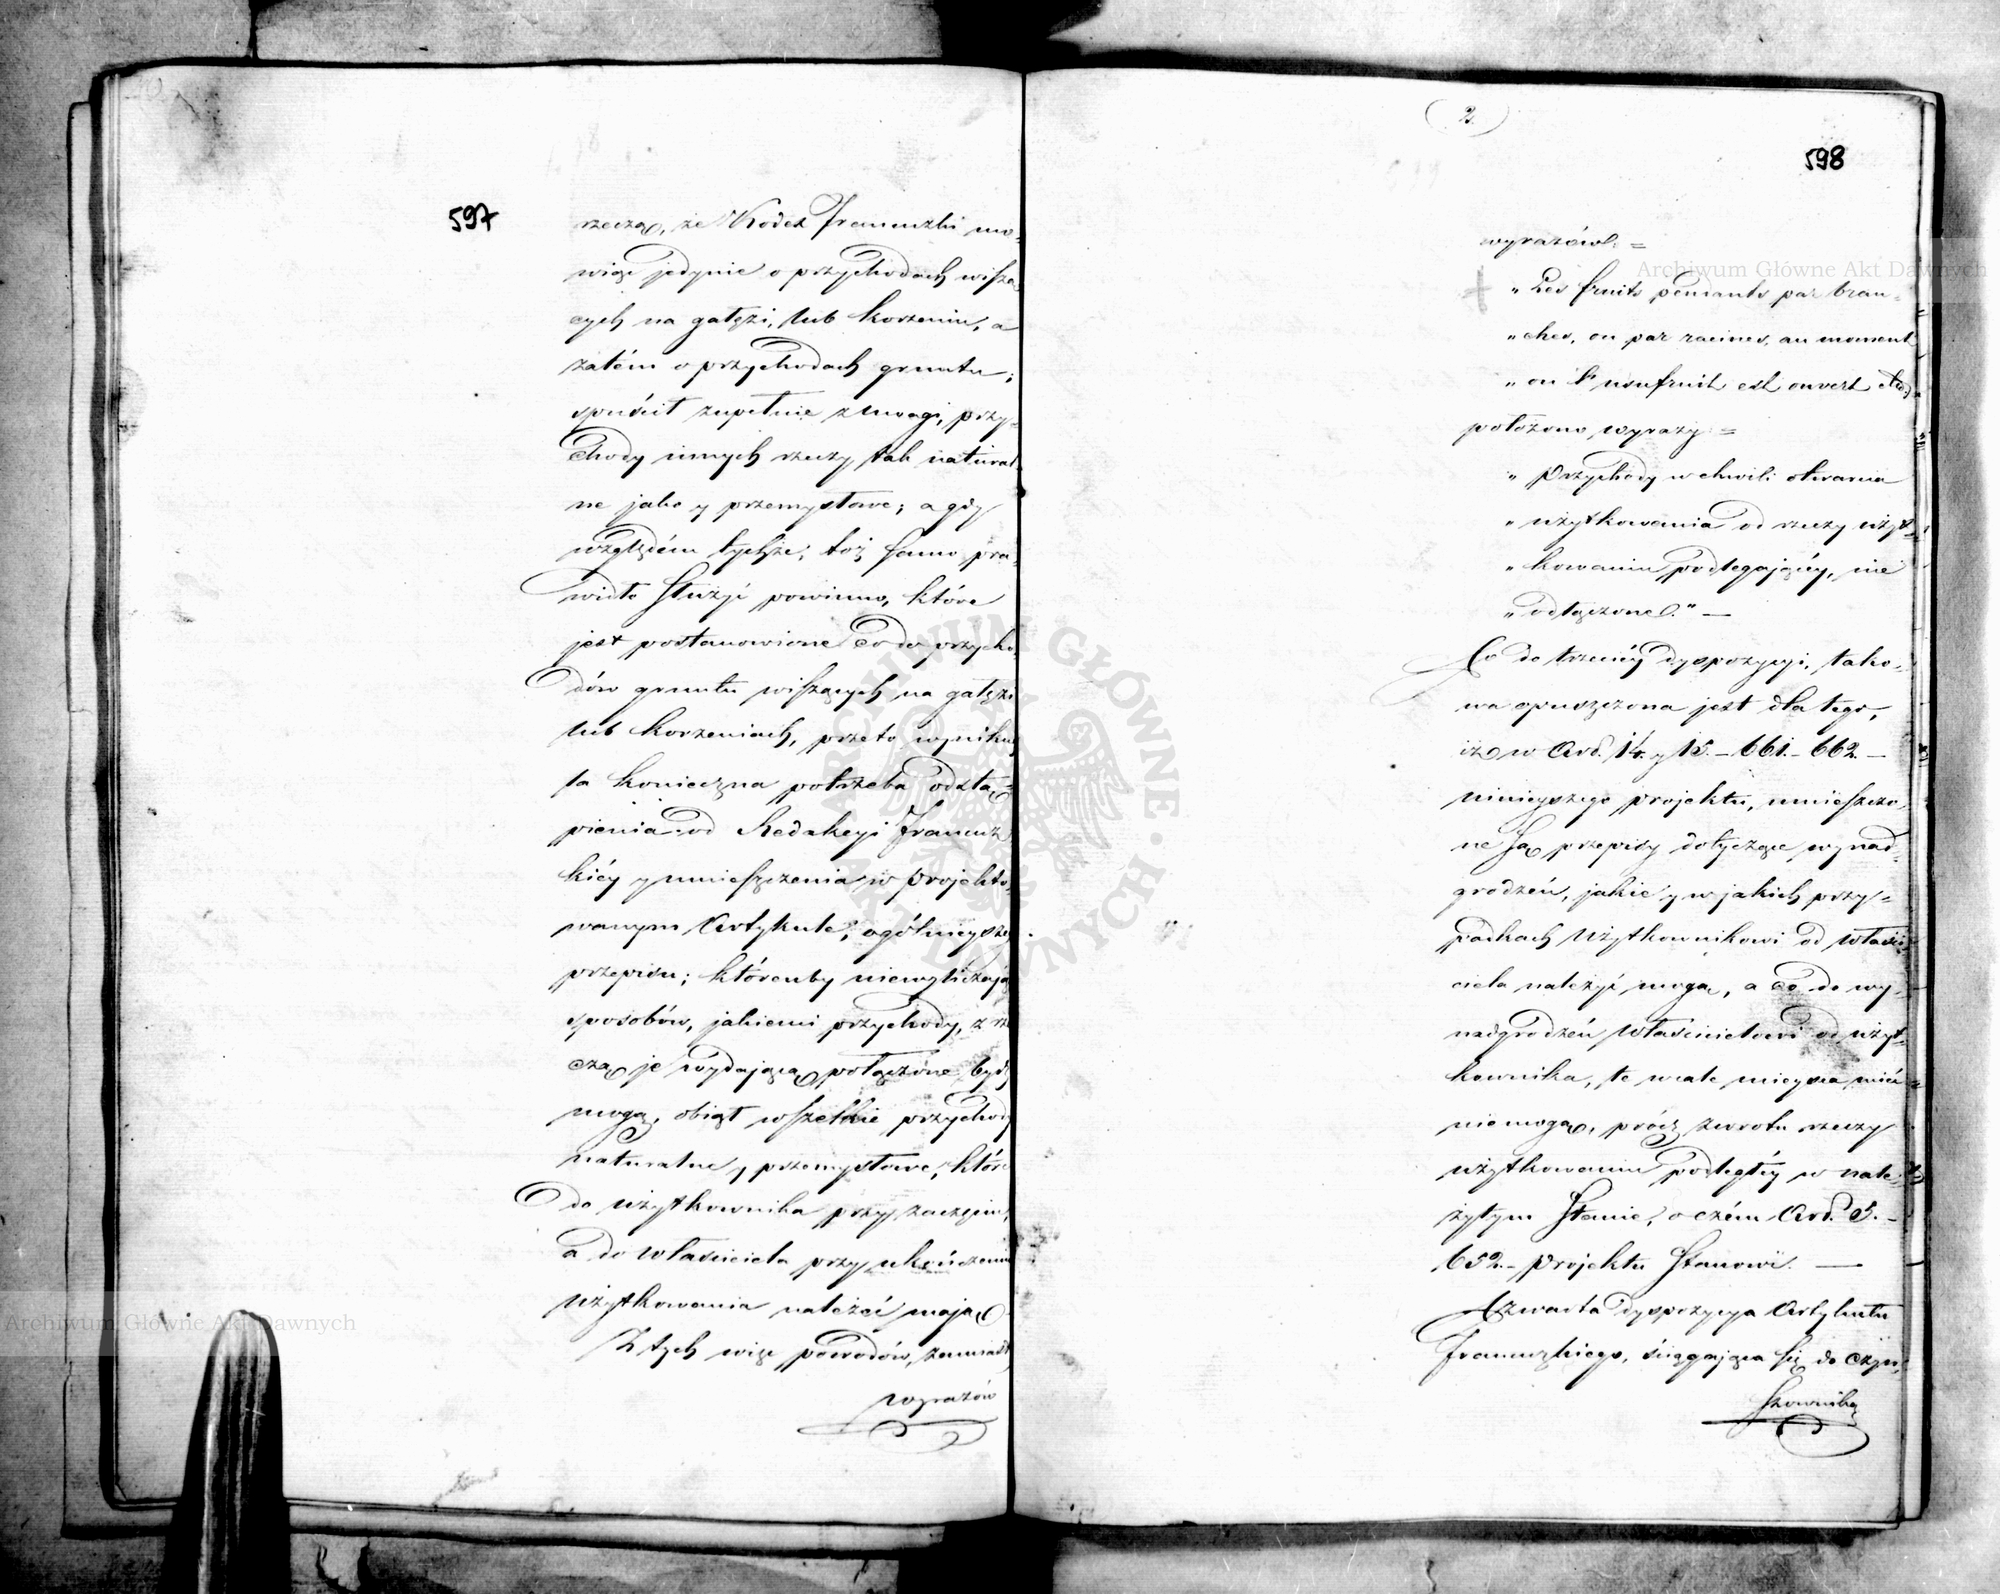 597
rzeczą, że Kodex francuzki mó-
wiąc jedynie o przychodach wiszą
cych na gałęzi, lub korzeniu, a
zatém o przychodach gruntu;
spuścił zupełnie z uwagi, przy-
chody innych rzeczy, tak natural
ne jako y przemysłowe; a gdy
względém tychże, toż samo pra-
widło służyć powinno, które
jest postanowione co do przycho-
dów gruntu wiszących na gałęzi
lub korzeniach, przeto wynika
ta konieczna potrzeba odstą-
pienia od Redakcyi francuz
kiéy y umieszczenia w projekto-
wanym Artykule, ogólnieyszeg
przepisu; którenby niewyliczają
sposobów, jakiemi przychody, z rze
czą je wydającą połączone bydź
mogą, objął wszelkie przychody
naturalne y przemysłowe, które
do użytkownika przy zaczęciu,
a do właściciela przy ukończeniu
użytkowania należeć mają.
Z tych więc powodów, zamiast
wyrazów
(2.)
598
wyrazów: =
„ Les fruits pendants par bran-
„ ches, ou par racines, au moment
„ ou l'usufruit est ouvert etc.
położono wyrazy: =
„ Przychody w chwili otwarcia
„ użytkowania od rzeczy użyt-
„ kowaniu podlegającéy, nie
„ odłączone." —
Co do trzeciéy dyspozycyi, tako-
wa opuszczona jest dla tego,
iż w Art. 14. y 15. – 661. – 662. –
ninieyszego projektu, umieszczo-
ne są przepisy dotyczące wynad-
grodzeń, jakie y w jakich przy-
padkach użytkownikowi od właści
ciela należyć mogą, a co do wy-
nadgrodzeń właścicielowi od użyt-
kownika, te wcale mieysca mieć
niemogą, prócz zwrotu rzeczy
użytkowaniu podległéy w nale-
żytym stanie, o czém Art. 5. –
652. – projektu stanowi. —
Czwarta dyspozycya Artykułu
francuzkiego, ściągająca się do czyn-
szownika
Archiwum Główne Akt Dawnych
Archiwum Główne Akt Dawnych
ARCHIWUM GŁÓWNE AKT DAWNYCH